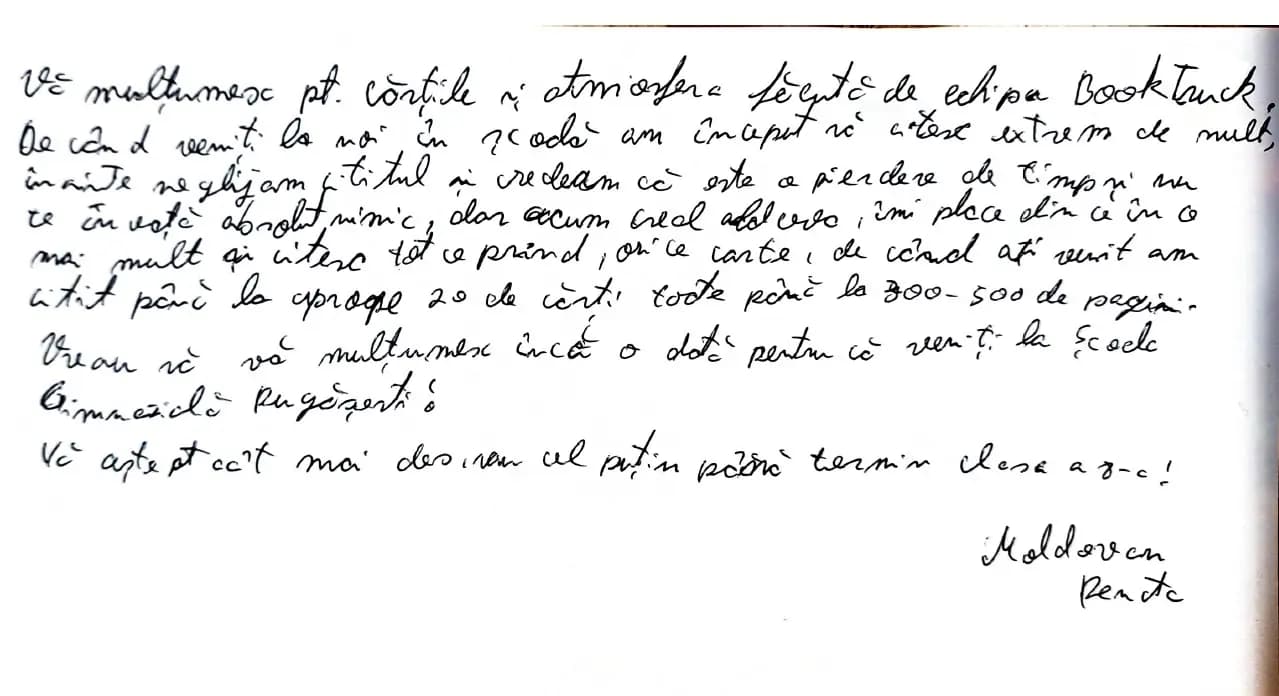 Vă mulțumesc pt. cărțile și atmosfera făcută de echipa BookTruck.
De când veniți la noi în școală am început să citesc extrem de mult,
înainte neglijam cititul și credeam că este o pierdere de timp și nu
te învață absolut nimic, dar acum cred altceva, îmi place din ce în ce
mai mult și citesc tot ce prind, orice carte, de când ați venit am
citit până la aproape 20 de cărți toate până la 300-500 de pagini.
Vreau să vă mulțumesc încă o dată pentru că veniți la Școala
Gimnazială Rugășești!
Vă aștept cât mai des, sau cel puțin până termin clasa a 8-a!
Moldovan
Renata